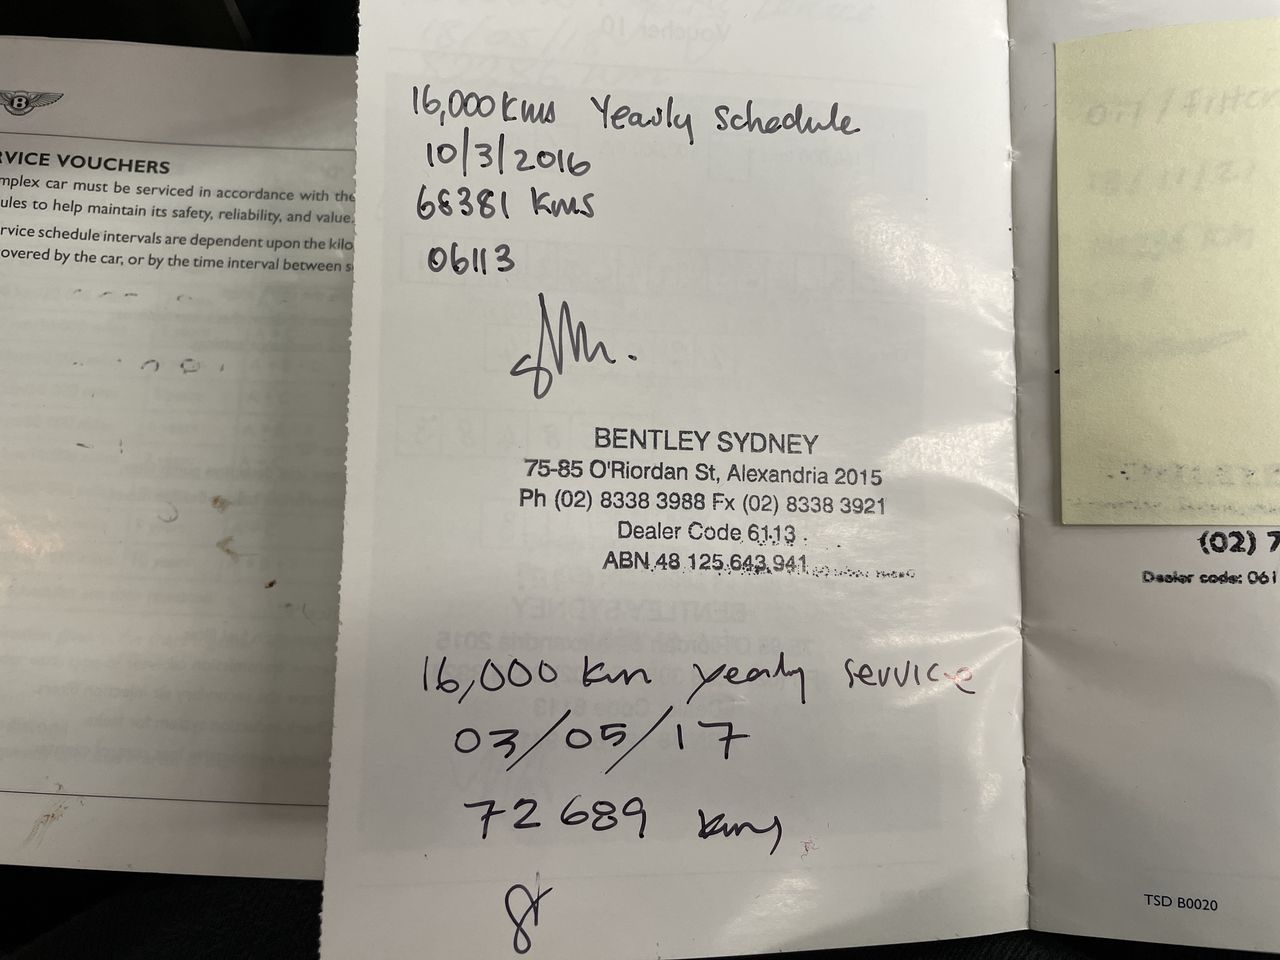 B
RVICE VOUCHERS
mplex car must be serviced in accordance with the
ules to help maintain its safety, reliability, and value.
rvice schedule intervals are dependent upon the kilo
overed by the car, or by the time interval between s
16,000 Kms Yearly Schedule
10/3/2016
68381 Kms
06113
BENTLEY SYDNEY
75-85 O'Riordan St, Alexandria 2015
Ph (02) 8338 3988 Fx (02) 8338 3921
Dealer Code 6113
ABN 48 125 643 941
16,000 km yearly service
03/05/17
72 689 kms
(02) 7
Dealer code: 061
TSD B0020